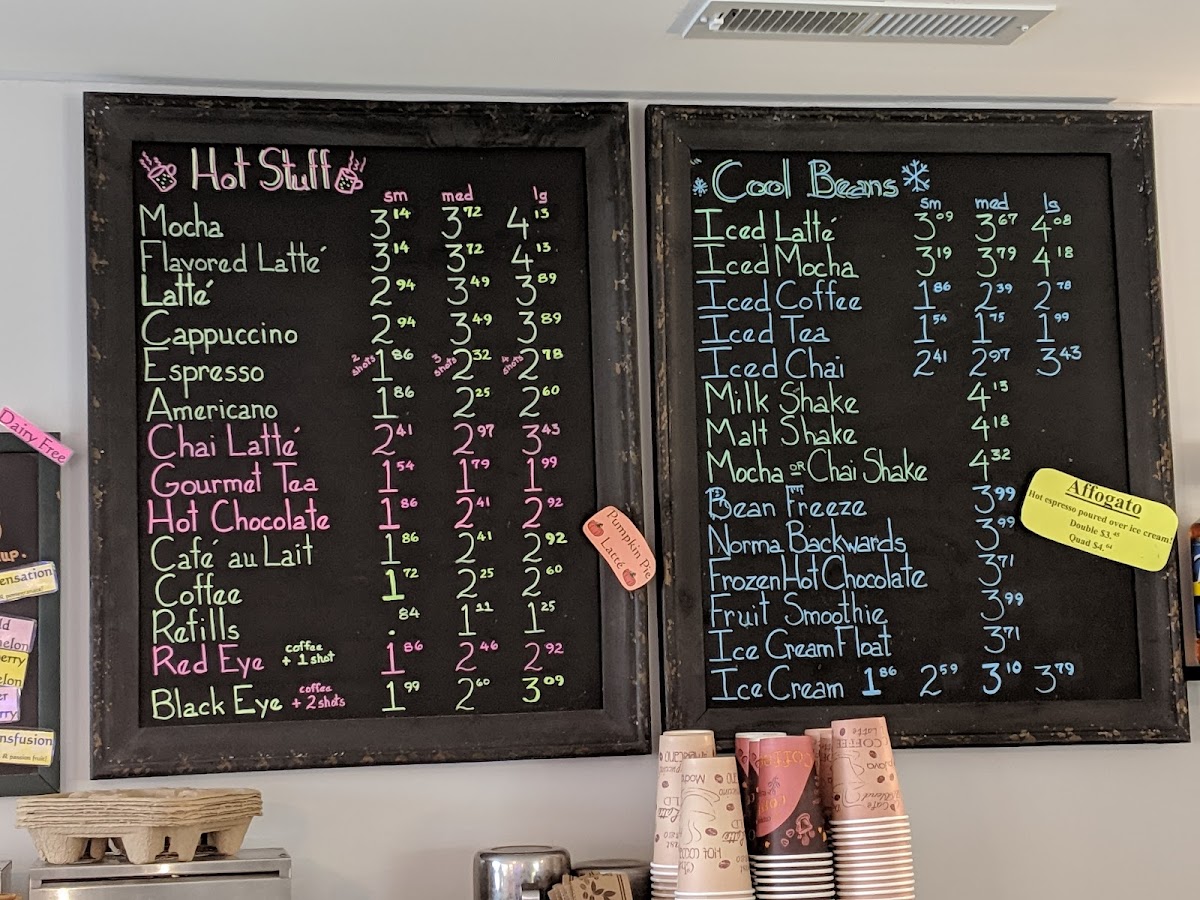 Hot Stuff
sm med lg
Mocha 3.14 3.72 4.13
Flavored Latté 3.14 3.72 4.13
Latté 2.94 3.49 3.89
Cappuccino 2.94 3.49 3.89
Espresso 2 shots 1.86 3 shots 2.32 4 shots 2.78
Americano 1.86 2.25 2.60
Chai Latté 2.41 2.97 3.43
Gourmet Tea 1.54 1.79 1.99
Hot Chocolate 1.86 2.41 2.92
Café au Lait 1.86 2.41 2.92
Coffee 1.72 2.25 2.60
Refills .84 1.11 1.25
Red Eye coffee + 1 shot 1.86 2.46 2.92
Black Eye coffee + 2 shots 1.99 2.60 3.09
Cool Beans
sm med lg
Iced Latté 3.09 3.67 4.08
Iced Mocha 3.19 3.79 4.18
Iced Coffee 1.86 2.39 2.78
Iced Tea 1.54 1.75 1.99
Iced Chai 2.41 2.97 3.43
Milk Shake 4.13
Malt Shake 4.18
Mocha or Chai Shake 4.32
Bean Freeze 3.99
Norma Backwards 3.99
Frozen Hot Chocolate 3.71
Fruit Smoothie 3.99
Ice Cream Float 3.71
Ice Cream 1.86 2.59 3.10 3.79
Affogato
Hot espresso poured over ice cream!
Double $3.45
Quad $4.64
Pumpkin Pie
Latté
Dairy Free
COFFEE
Latte
HOT COCOA